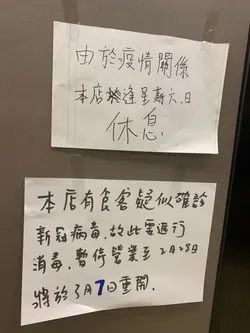 由於疫情關係
本店逢星期六.日
休息
本店有食客疑似確診
新冠病毒.故此需進行
消毒.暫停營業至2月28日
將於3月7日重開.